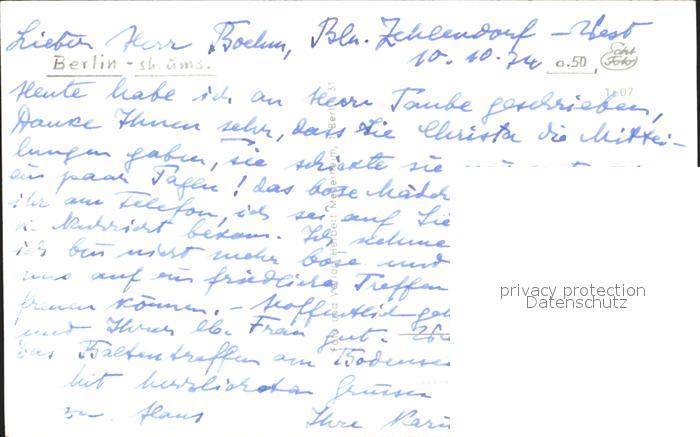 Lieber Herr Boehm, Bln. Zehlendorf - West
10. 10. 74
Berlin - sh. ums. 0.50 Echt Foto
1107
Heute habe ich an Herrn Taube geschrieben,
Danke Ihnen sehr, dass Sie Christa die Mittei-
lungen gaben, sie schickte sie
ein paar Tagen! das böse Mädch
ihr am Telefon, ich sei auf Sie
k. Nachricht bekam. Ich nehme
ich bin nicht mehr böse und
uns auf ein friedliches Treffen
freuen können. - Hoffentlich geh
und Ihrer lb. Frau gut.
Das Baltentreffen am Bodensee
Mit herzlichsten Grüssen
Ihre Karin
privacy protection
Datenschutz